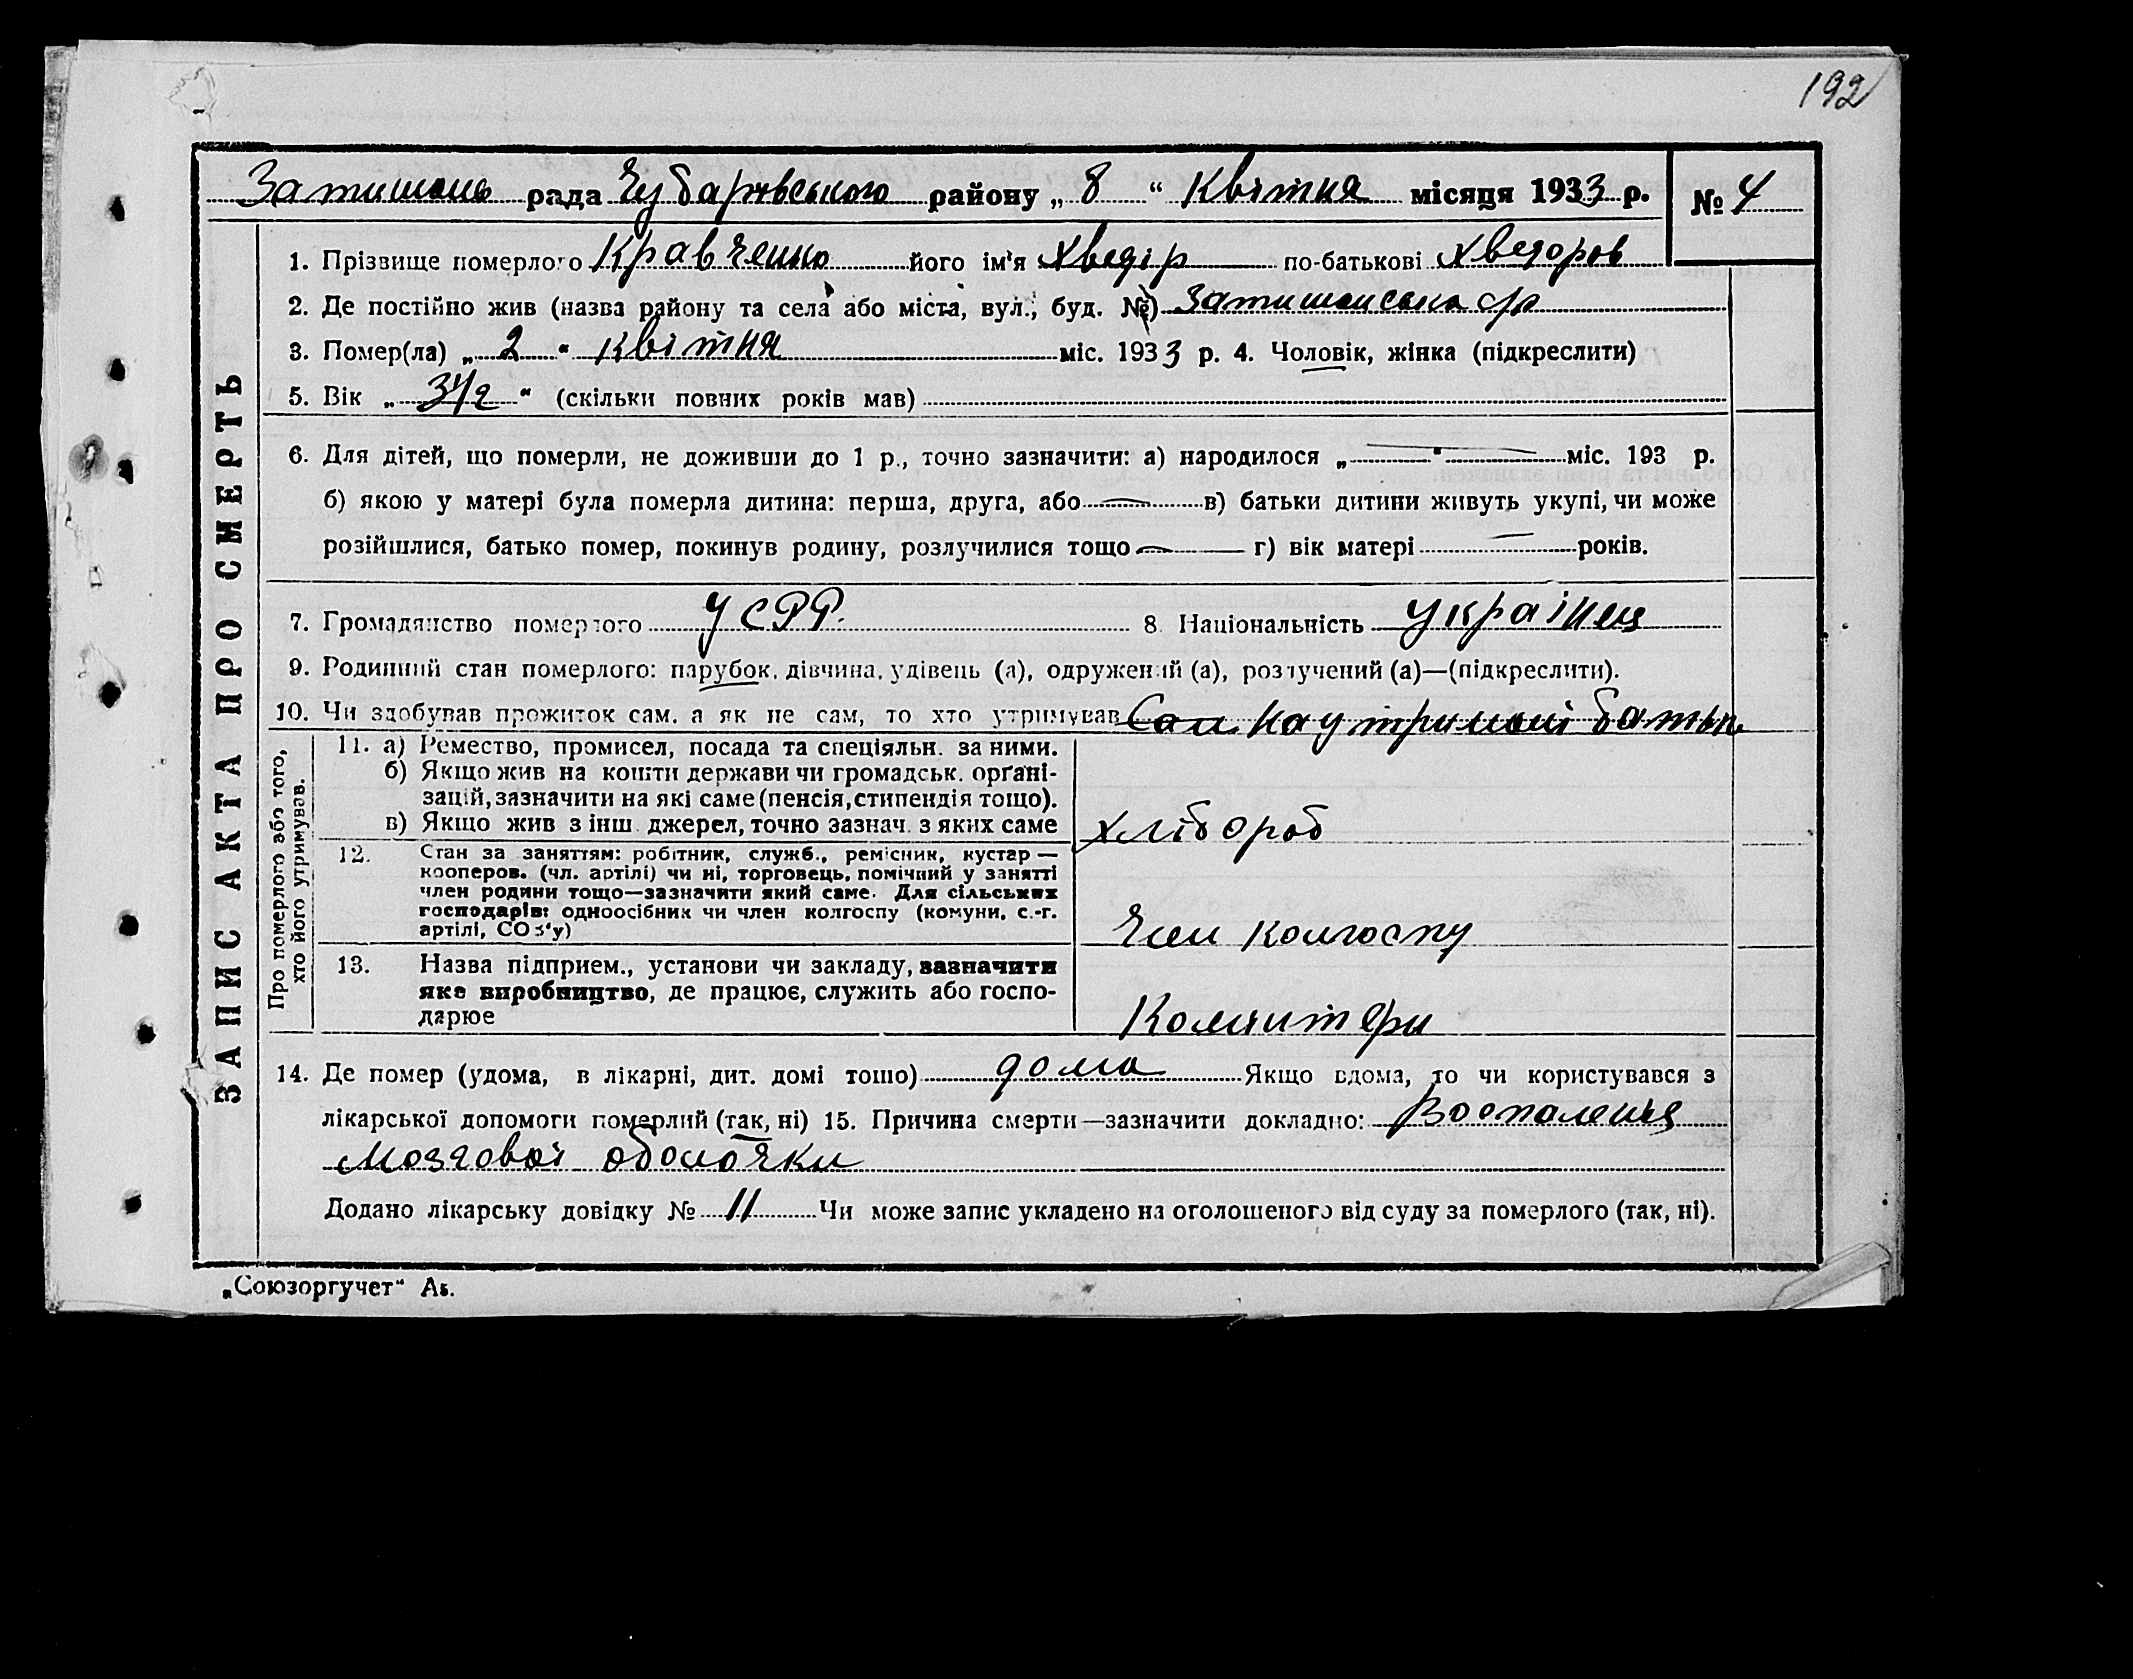 192
Затишань рада Чубарівського району „ 8 “ Квітня місяця 1933 р. № 4
1. Прізвище померлого Кравченко його ім'я Хведір по-батькові Хведоров
2. Де постійно жив (назва району та села або міста, вул., буд. №) Затишанська с/р
3. Помер(ла) „ 2 “ Квітня міс. 1933 р. 4. Чоловік, жінка (підкреслити)
5. Вік „ 3 1/2 “ (скільки повних років мав)
6. Для дітей, що померли, не доживши до 1 р., точно зазначити: а) народилося „ — “ — міс. 193 р.
б) якою у матері була померла дитина: перша, друга, або — в) батьки дитини живуть укупі, чи може
розійшлися, батько помер, покинув родину, розлучилися тощо — г) вік матері — років.
7. Громадянство померлого УСРР. 8. Національність Українец
9. Родинний стан померлого: парубок, дівчина, удівець (а), одружений (а), розлучений (а)—(підкреслити).
10. Чи здобував прожиток сам, а як не сам, то хто утримував Сам На утримані батьки
Про померлого або того,
хто його утримував.
11. а) Ремество, промисел, посада та спеціяльн. за ними.
б) Якщо жив на кошти держави чи громадськ. орґані-
зацій, зазначити на які саме (пенсія, стипендія тощо).
в) Якщо жив з інш. джерел, точно зазнач. з яких саме
Хлібороб
12. Стан за заняттям: робітник, служб., ремісник, кустар —
кооперов. (чл. артілі) чи ні, торговець, помічний у занятті
член родини тощо—зазначити який саме. Для сільських
господарів: одноосібник чи член колгоспу (комуни, с.-г.
артілі, СОЗ'у)
Член колгоспу
13. Назва підприєм., установи чи закладу, зазначити
яке виробництво, де працює, служить або госпо-
дарює
14. Де помер (удома, в лікарні, дит. домі тощо) дома Якщо вдома, то чи користувався з
лікарської допомоги померлий (так, ні) 15. Причина смерти—зазначити докладно: Воспаления
Мозговой оболочки
Додано лікарську довідку № 11 Чи може запис укладено на оголошеного від суду за померлого (так, ні).
ЗАПИС АКТА ПРО СМЕРТЬ
„Союзоргучет“